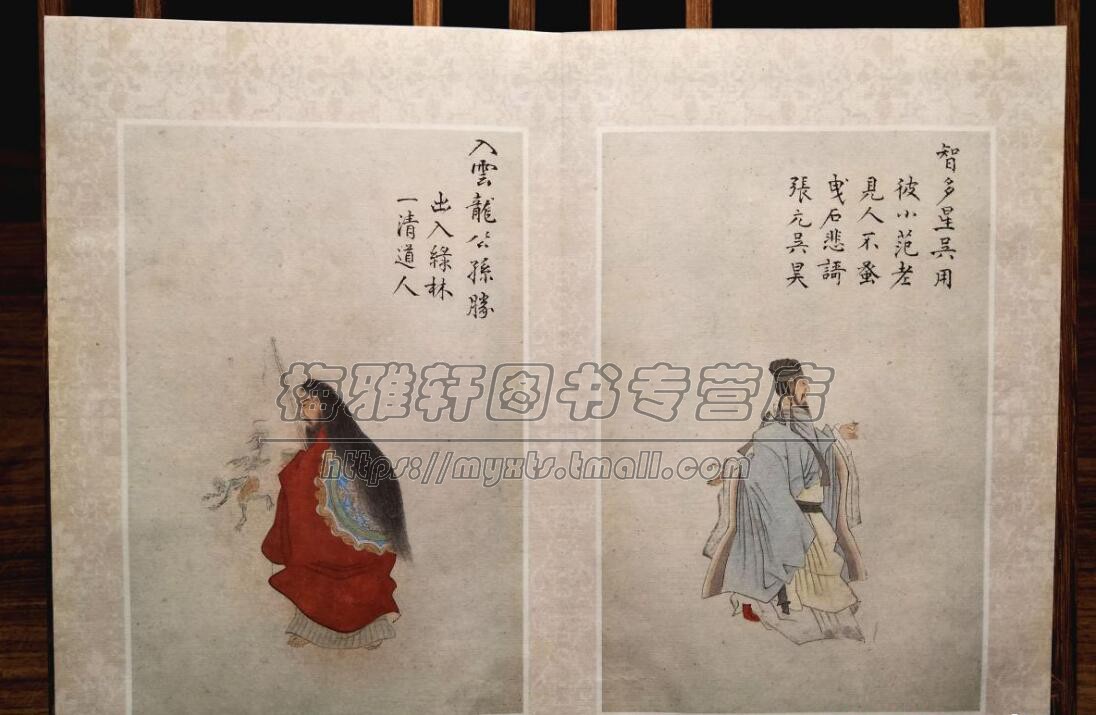 智多星吳用
彼小范老
見人不蚤
曳石悲謌
張元吳昊
入雲龍公孫勝
出入綠林
一清道人
梅雅轩图书专营店
https://myxts.tmall.com